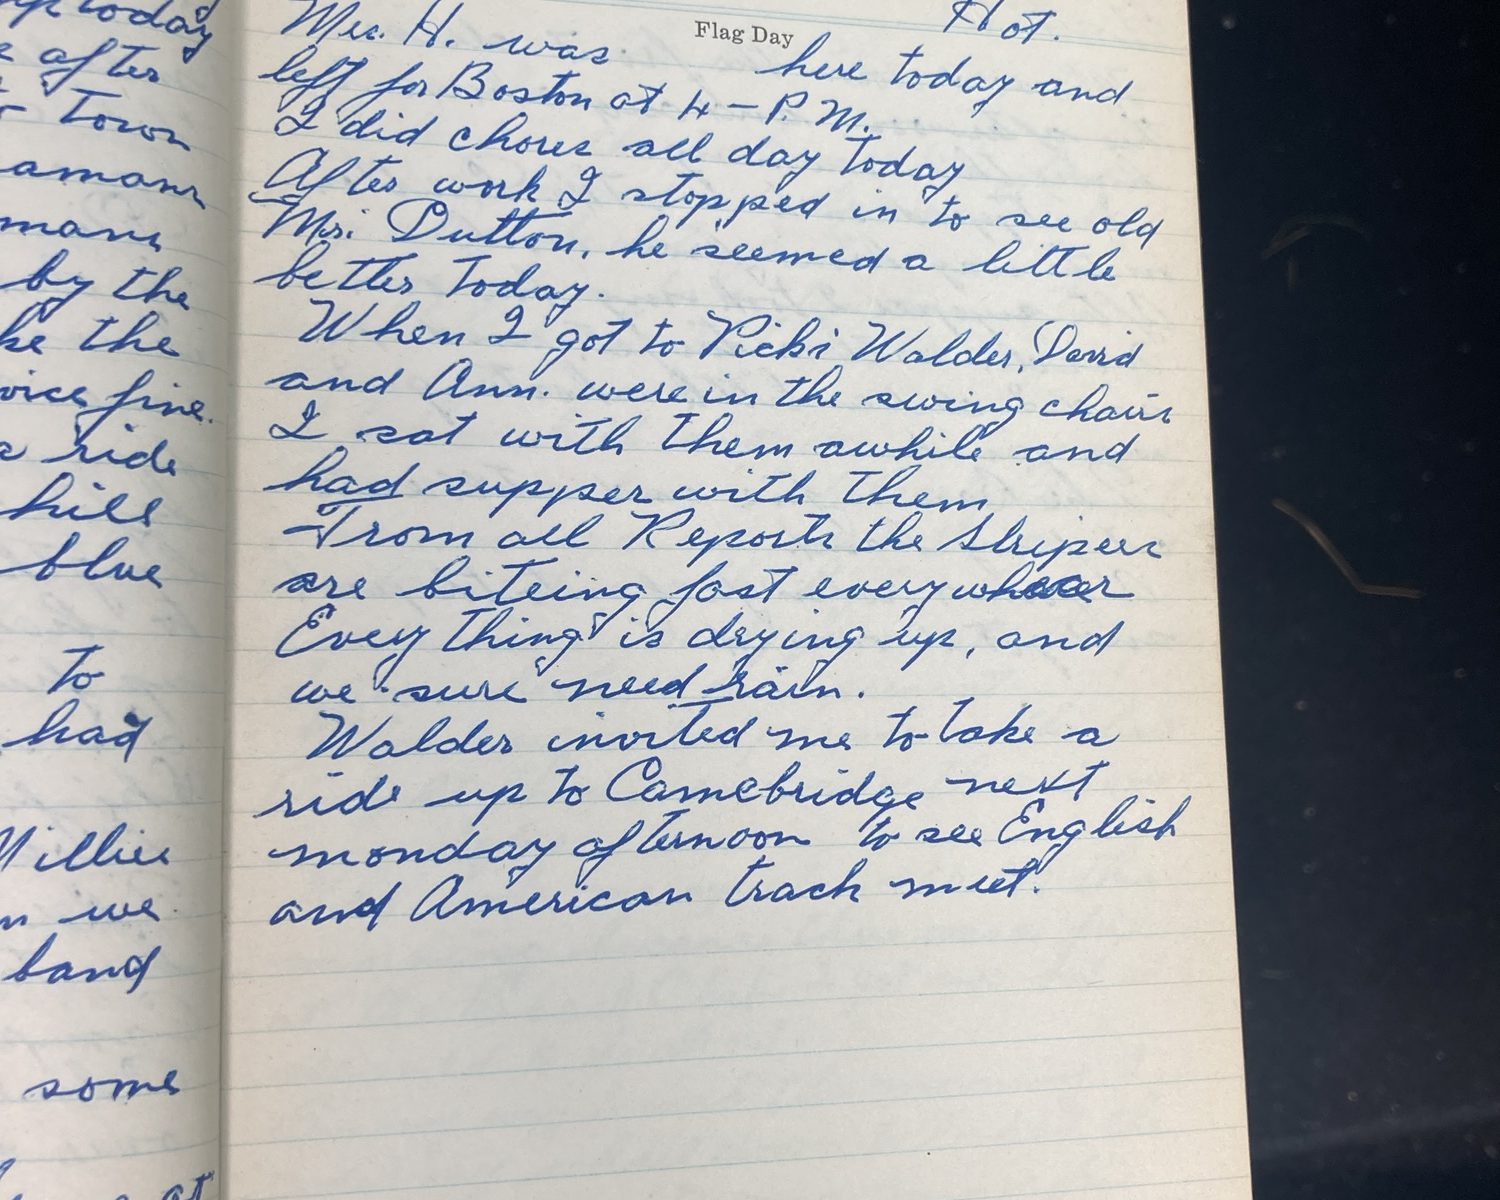 up today
after
Town
by the
ke the
voice fine.
a ride
hill
blue
to
had
Millie
n we
band
some
at
Hot.
Flag Day
Mrs. H. was here today and
left for Boston at 4 - P.M.
I did chores all day today
After work I stopped in to see old
Mr. Dutton, he seemed a little
better today.
When I got to Walder, David
and Ann. were in the swing chair
I sat with them awhile and
had supper with them
From all Reports the Stripers
are biteing fast everywhere
Every thing is drying up, and
we sure need rain.
Walder invited me to take a
ride up to Camebridge next
monday afternoon to see English
and American track meet.